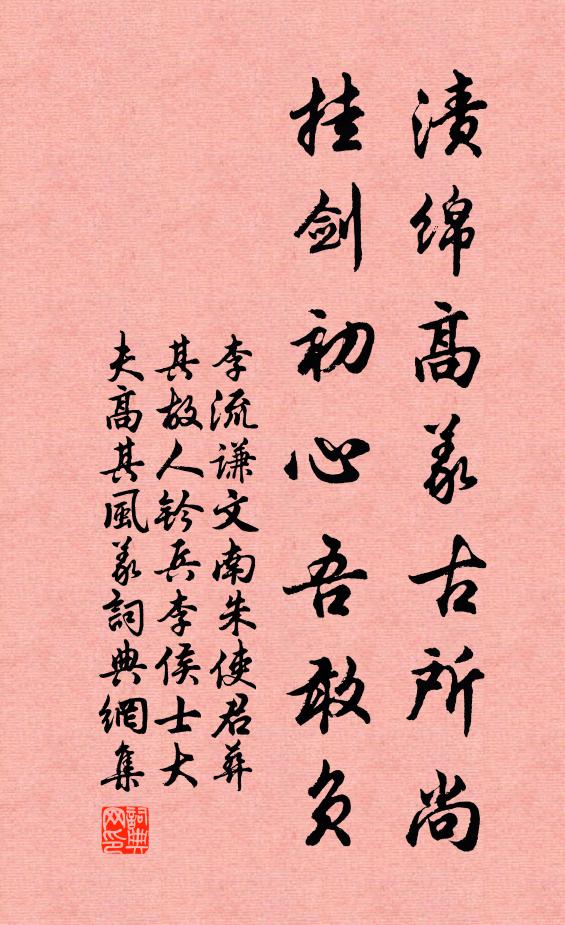 渍绵高義古所尚
挂剑初心吾敢负
李流谦文南朱使君葬
其故人钤兵李侯士大
夫高其風義詞典網集
詞典
网印